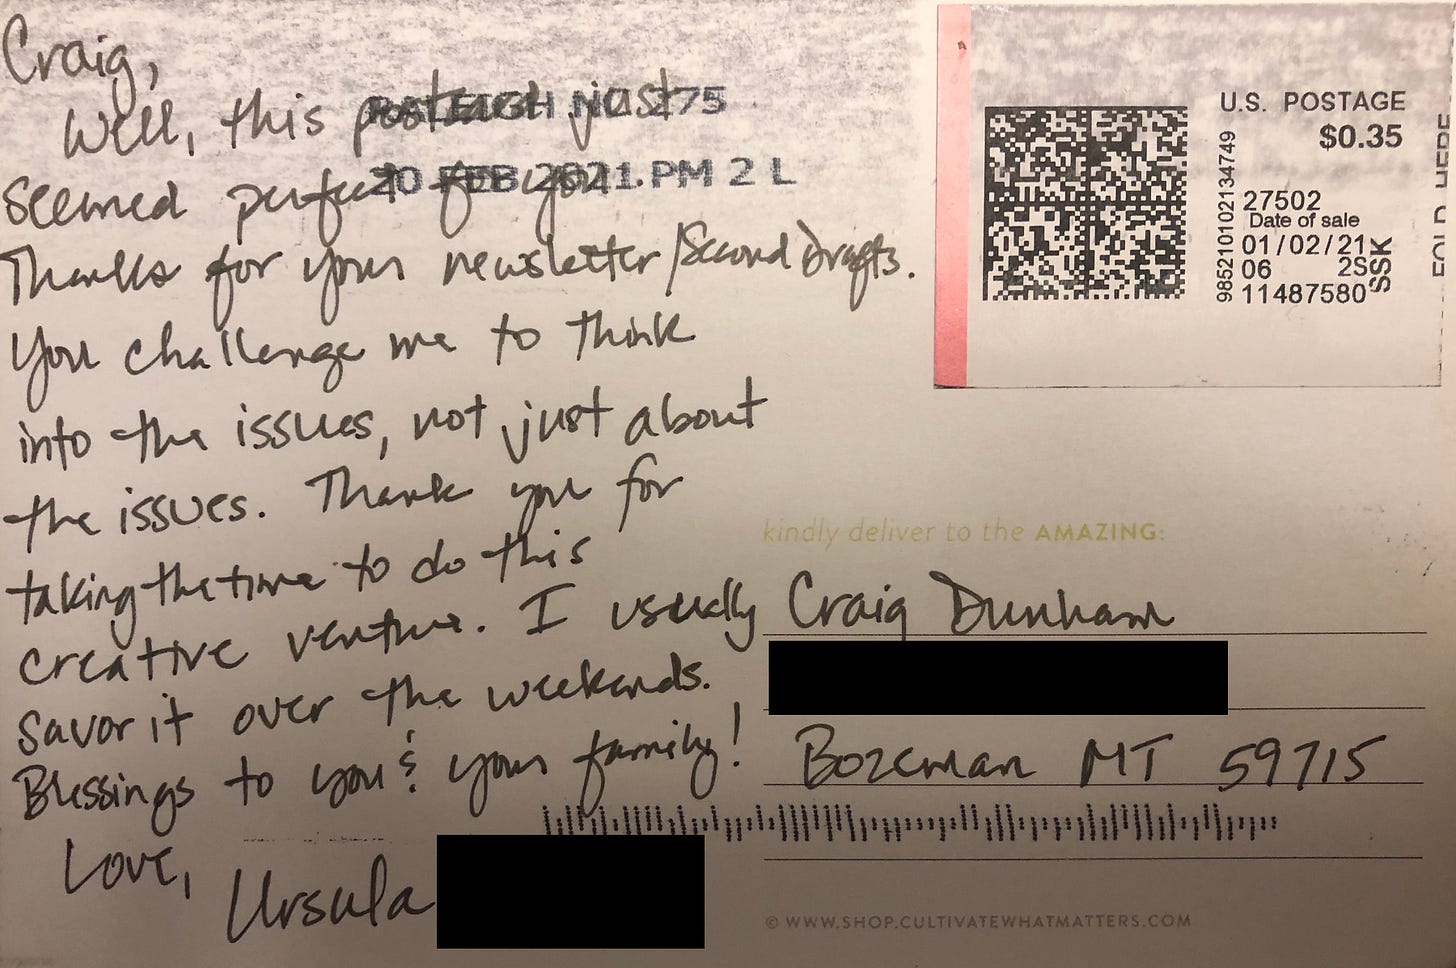 Craig,
Well, this postcard just
RALEIGH NC 275
seemed perfect for you.
20 FEB 2021 PM 2 L
Thanks for your newsletter/Second Drafts.
You challenge me to think
into the issues, not just about
the issues. Thank you for
taking the time to do this
creative venture. I usually
savor it over the weekends.
Blessings to you & your family!
Love,
Ursula
U.S. POSTAGE
$0.35
27502
Date of sale
01/02/21
06 2S
11487580
SSK
985210102134749
FOLD HERE
kindly deliver to the AMAZING:
Craig Dunham
Bozeman MT 59715
© WWW.SHOP.CULTIVATEWHATMATTERS.COM